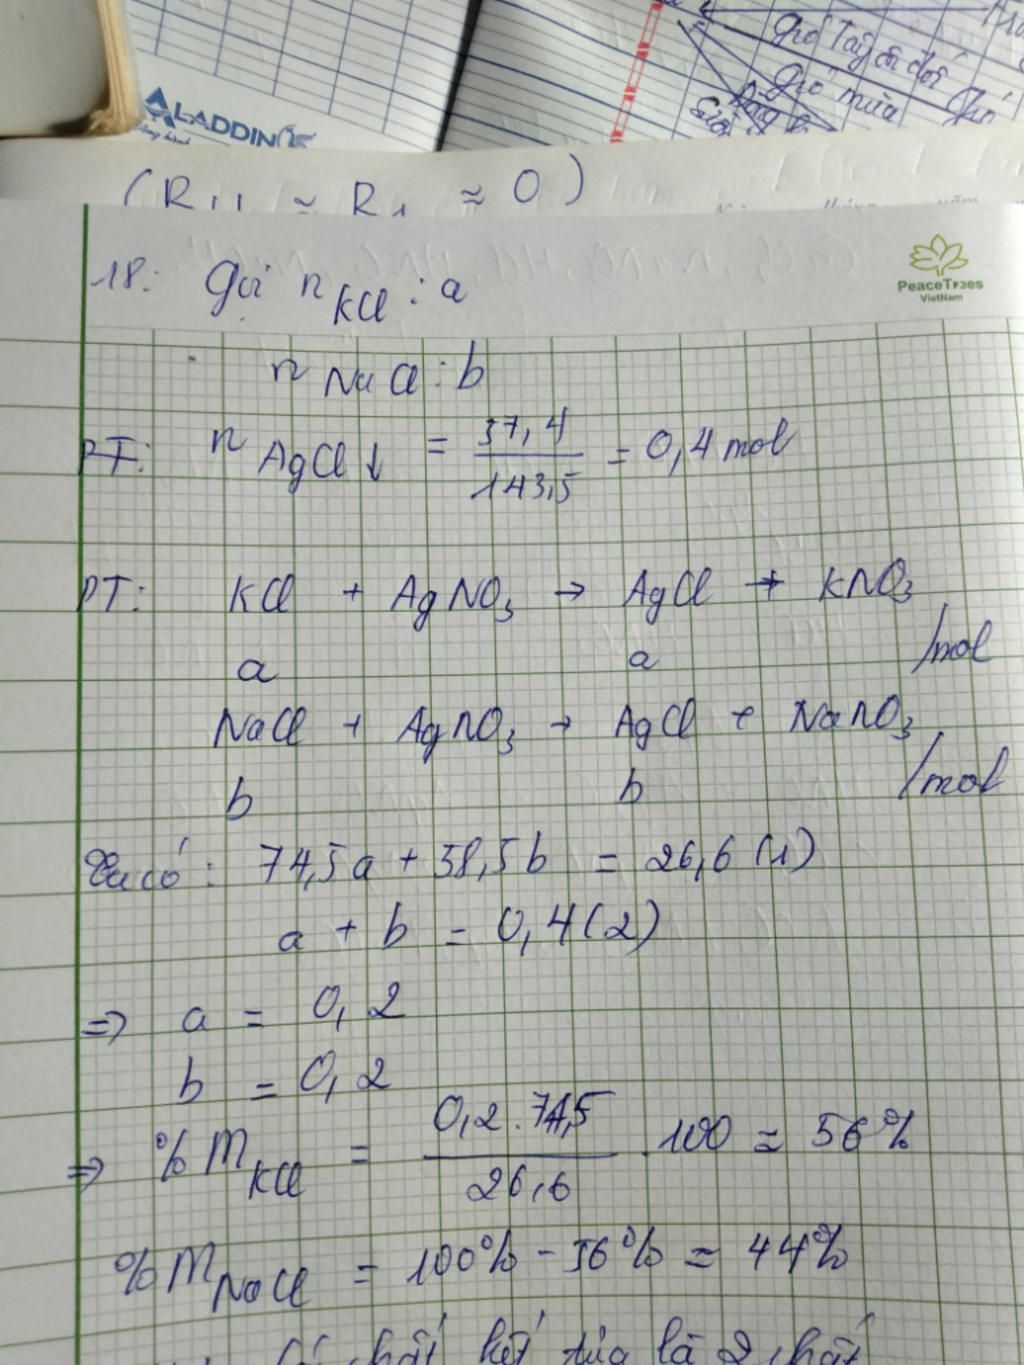 ALADDIN
Gió Tây ôn đới
Gió mùa
(R ≈ R ≈ 0)
PeaceTrees
VietNam
18: Gọi n KCl : a
n NaCl : b
PT: n AgCl↓ = 57,4 / 143,5 = 0,4 mol
PT: KCl + AgNO3 → AgCl + KNO3
a a /mol
NaCl + AgNO3 → AgCl + NaNO3
b b /mol
Ta có: 74,5a + 58,5b = 26,6 (1)
a + b = 0,4 (2)
=> a = 0,2
b = 0,2
=> % m KCl = 0,2 . 74,5 / 26,6 . 100 = 56%
% m NaCl = 100% - 56% = 44%
chất kết tủa là 2 chất